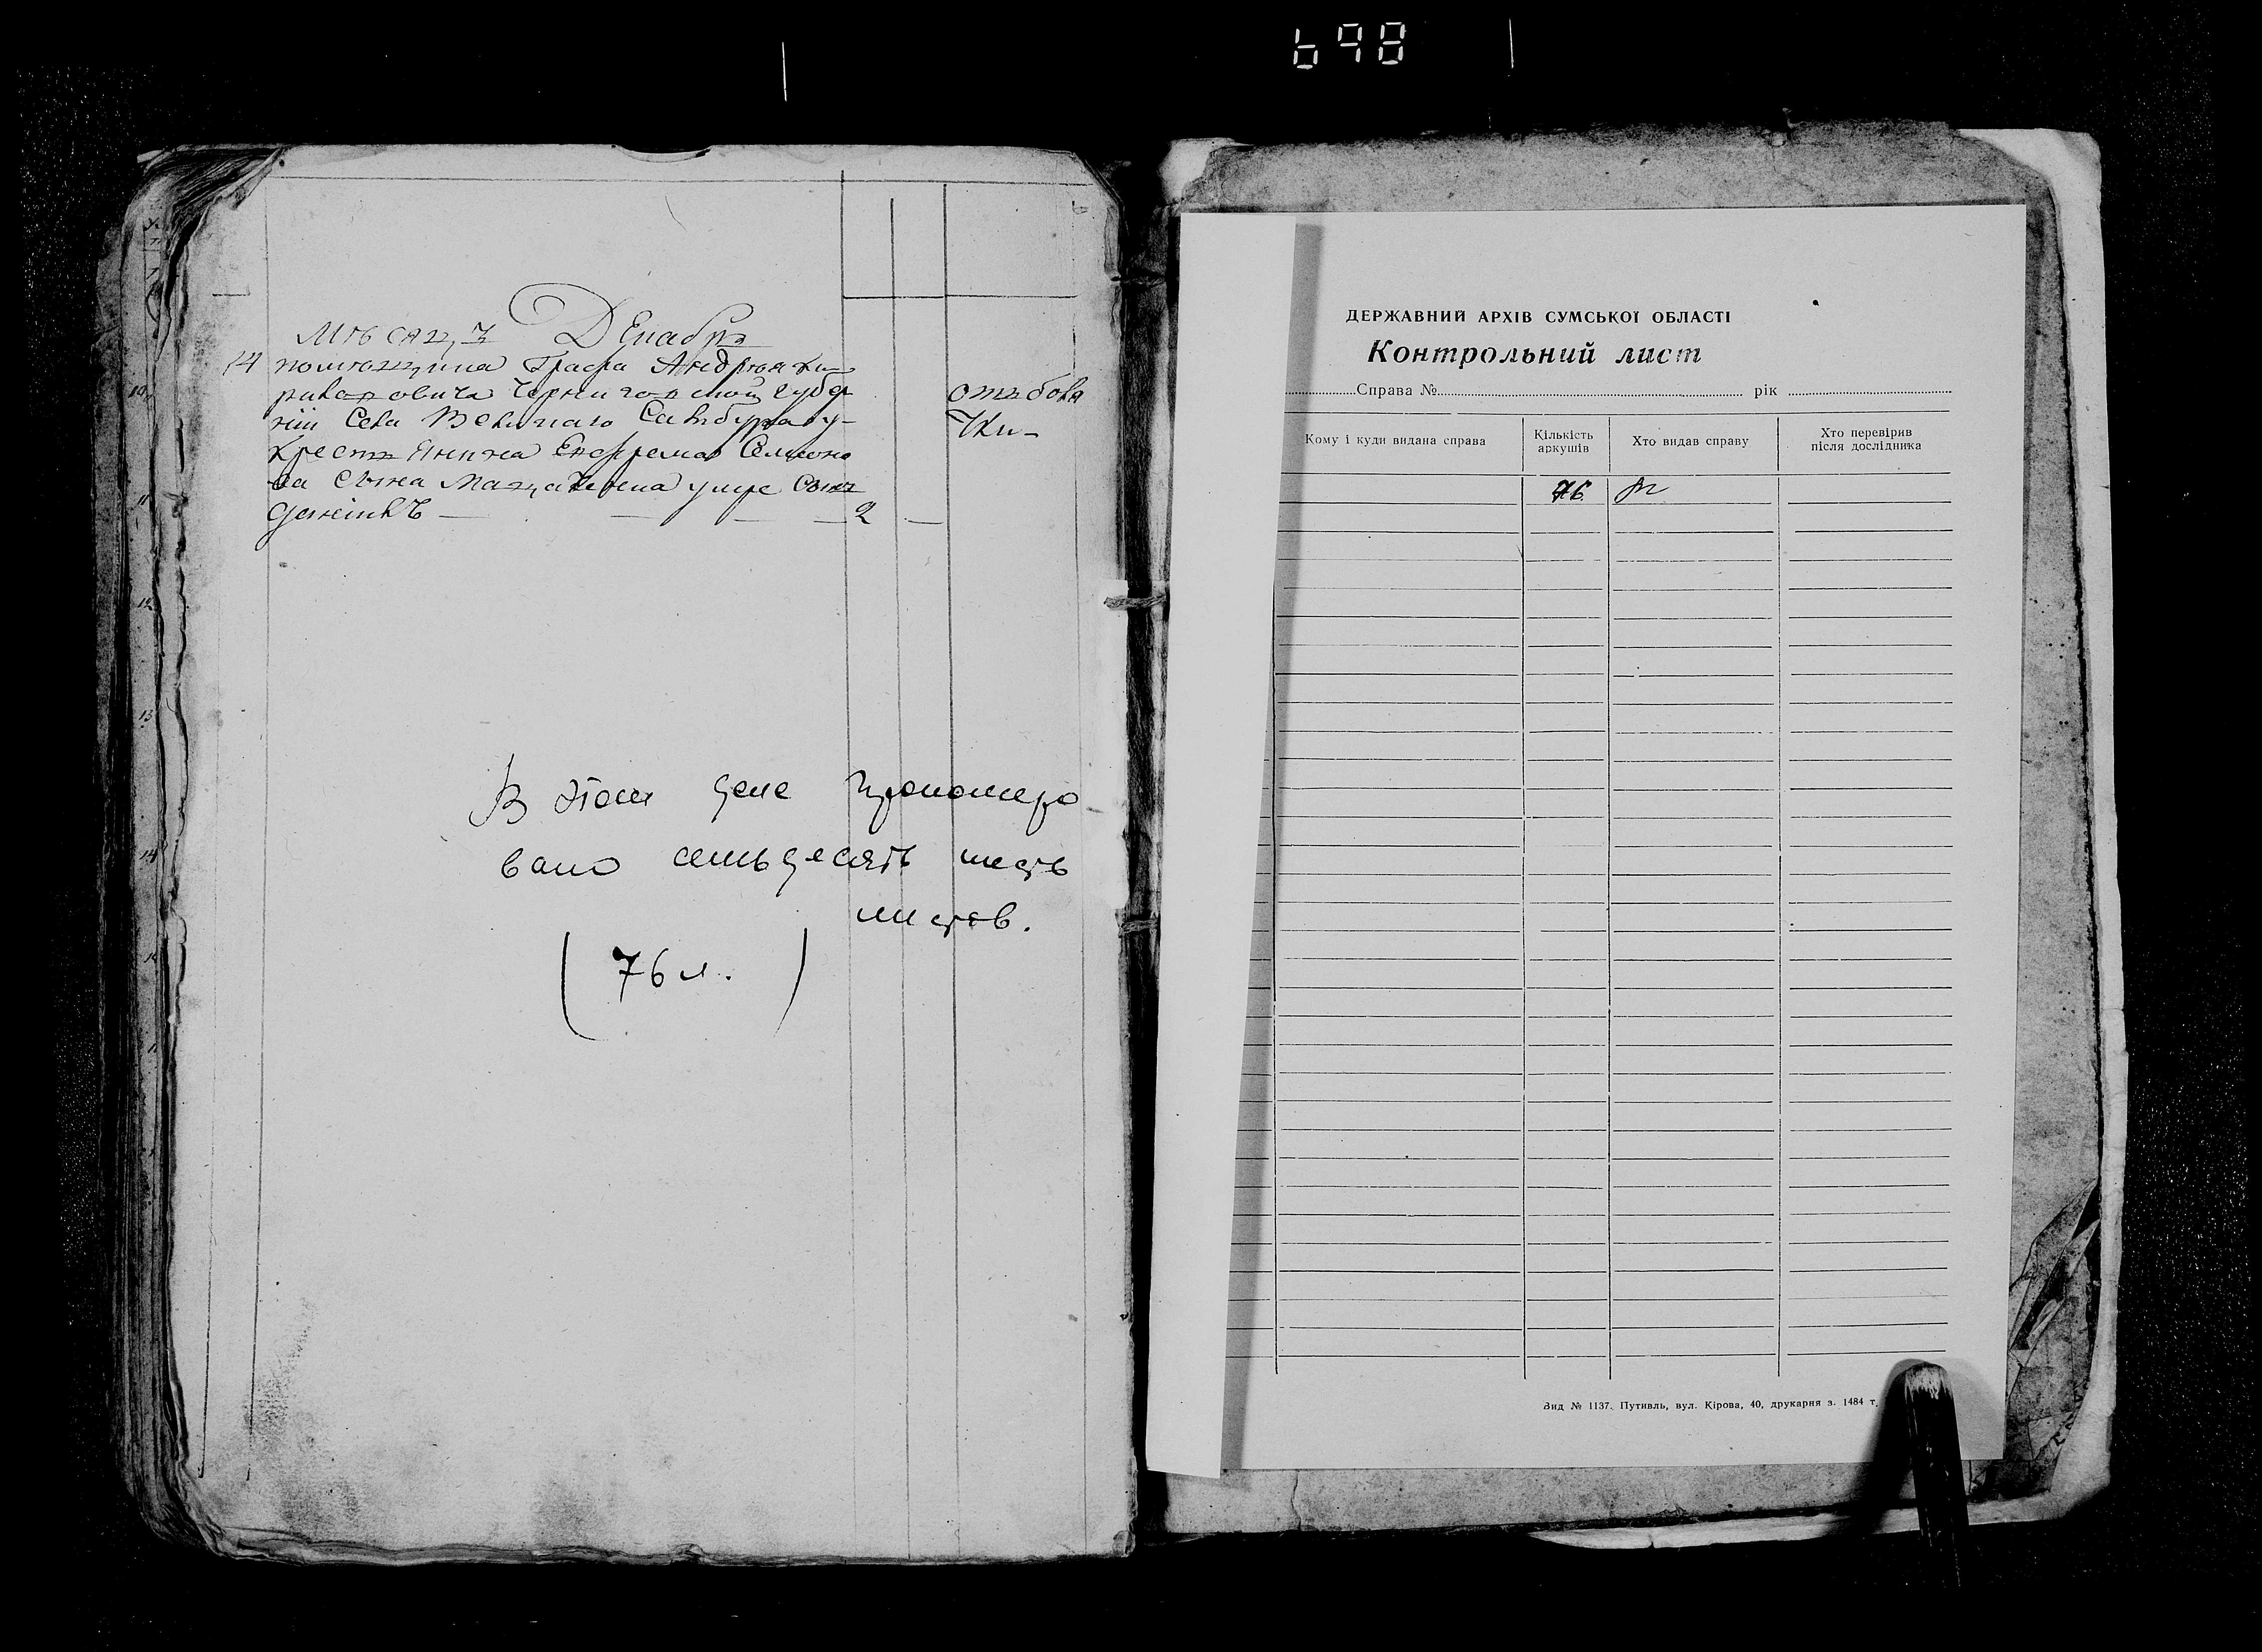 698
Мѣсяцъ Декабрь
14 помѣщика Графа Андрея Ки-
риловича Черниговской губер
ніи Села Великаго Самбура у
крестьянина Ефрема Семионо
ва сына умре сынъ
2
отъ боли
76
В этом деле прономеро
вано семьдесять шесть
листов.
(76 л.)
ДЕРЖАВНИЙ АРХІВ СУМСЬКОЇ ОБЛАСТІ
Контрольний лист
Справа № рік
Кому і куди видана справа Кількість аркушів Хто видав справу Хто перевірив після дослідника
76
Вид № 1137. Путивль, вул. Кірова, 40, друкарня з. 1484 т.